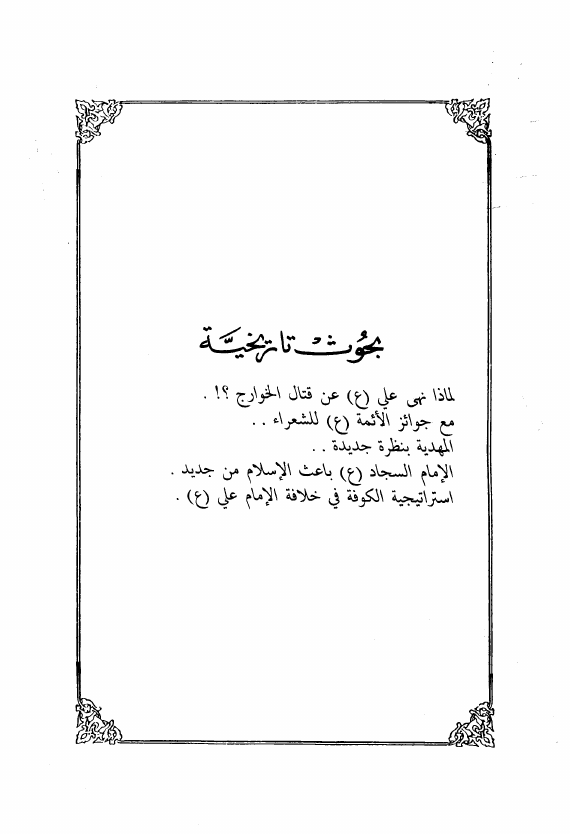 بحُوثْ تاريخيَّة
لماذا نهى علي (ع) عن قتال الخوارج ؟! .
مع جوائز الأئمة (ع) للشعراء . .
المهدية بنظرة جديدة . .
الإمام السجاد (ع) باعث الإسلام من جديد .
استراتيجية الكوفة في خلافة الإمام علي (ع) .